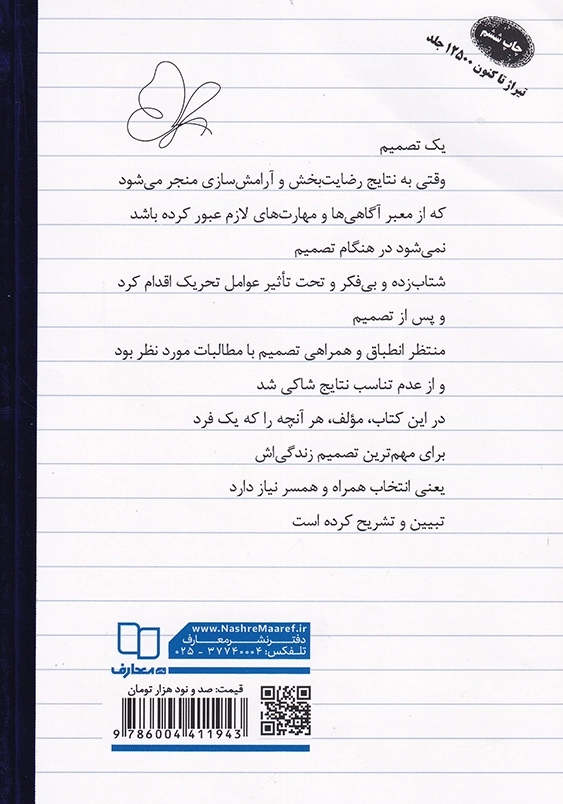 چاپ ششم
تیراژ تا کنون ۱۲۵۰۰ جلد
یک تصمیم
وقتی به نتایج رضایت‌بخش و آرامش‌سازی منجر می‌شود
که از معبر آگاهی‌ها و مهارت‌های لازم عبور کرده باشد
نمی‌شود در هنگام تصمیم
شتاب‌زده و بی‌فکر و تحت تأثیر عوامل تحریک اقدام کرد
و پس از تصمیم
منتظر انطباق و همراهی تصمیم با مطالبات مورد نظر بود
و از عدم تناسب نتایج شاکی شد
در این کتاب، مؤلف، هر آنچه را که یک فرد
برای مهم‌ترین تصمیم زندگی‌اش
یعنی انتخاب همراه و همسر نیاز دارد
تبیین و تشریح کرده است
www.NashreMaaref.ir
دفتر نشر معارف
تلفکس: ۳۷۷۴۰۰۰۴ - ۰۲۵
معارف
قیمت: صد و نود هزار تومان
9 786004 411943